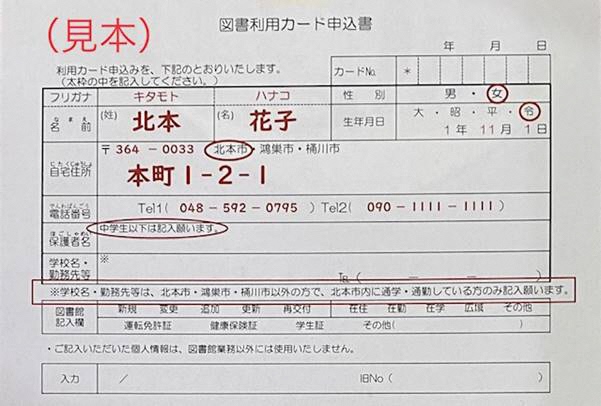 (見本)
図書利用カード申込書
年 月 日
利用カード申込みを、下記のとおりいたします。
(太枠の中を記入してください。)
カードNo. *
フリガナ キタモト ハナコ 性別 男・女
なまえ
名前 (姓) 北本 (名) 花子 生年月日 大・昭・平・令
1年 11月 1日
〒364-0033 北本市・鴻巣市・桶川市
じたくじゅうしょ
自宅住所 本町1-2-1
でんわばんごう
電話番号 Tel1(048-592-0795) Tel2(090-1111-1111)
中学生以下は記入願います。
ほごしゃめい
保護者名
学校名・
勤務先等 ※ Tel( - - )
※学校名・勤務先等は、北本市・鴻巣市・桶川市以外の方で、北本市内に通学・通勤している方のみ記入願います。
図書館
記入欄
新規 変更 追加 更新 再交付 在住 在勤 在学 広域 その他
運転免許証 健康保険証 学生証 その他( )
・ご記入いただいた個人情報は、図書館業務以外には使用いたしません。
入力 / IBNo( )